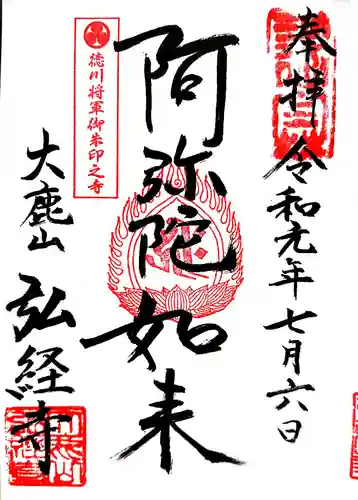 奉拝
令和元年七月六日
阿弥陀如来
徳川将軍御朱印之寺
大鹿山
弘経寺